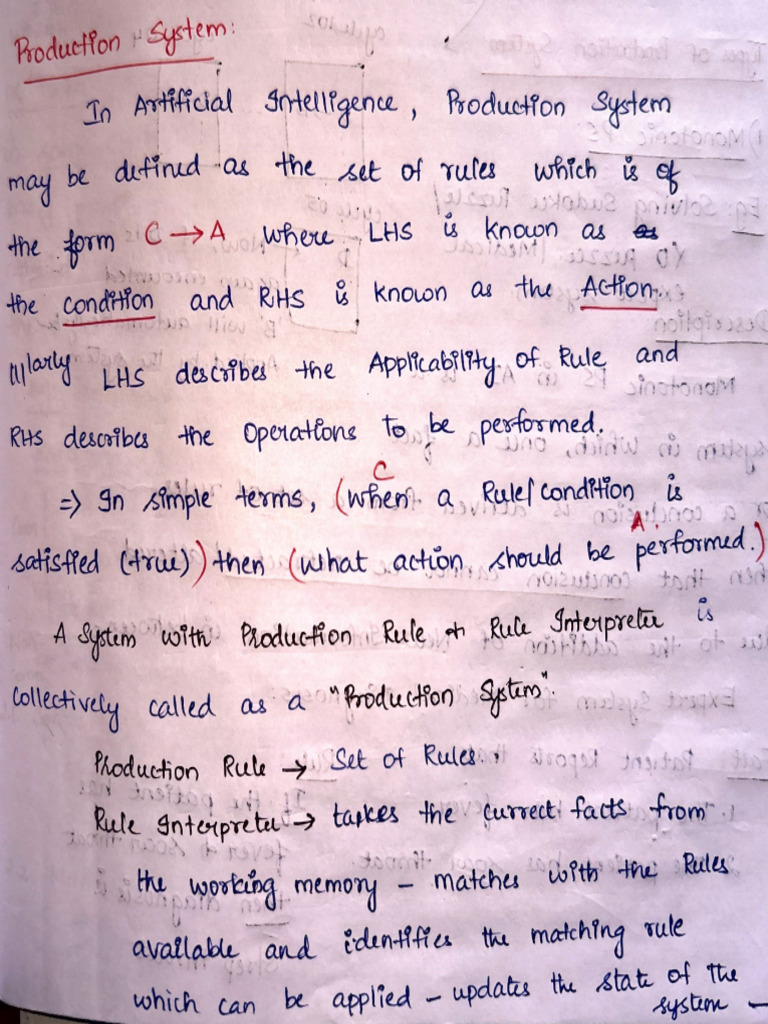 Production System:
In Artificial Intelligence, Production System
may be defined as the set of rules which is of
the form C → A where LHS is known as as
the condition and RHS is known as the Action.
|||larly LHS describes the Applicability of Rule and
RHS describes the Operations to be performed.
C
⇒ In simple terms, (when a Rule/condition is
A.
satisfied (true)) then (what action should be performed.)
A System with Production Rule & Rule Interpreter is
collectively called as a "Production System".
Production Rule → Set of Rules.
Rule Interpreter → takes the currect facts from
the working memory - matches with the Rules
available and identifies the matching rule
which can be applied - updates the state of the
system -